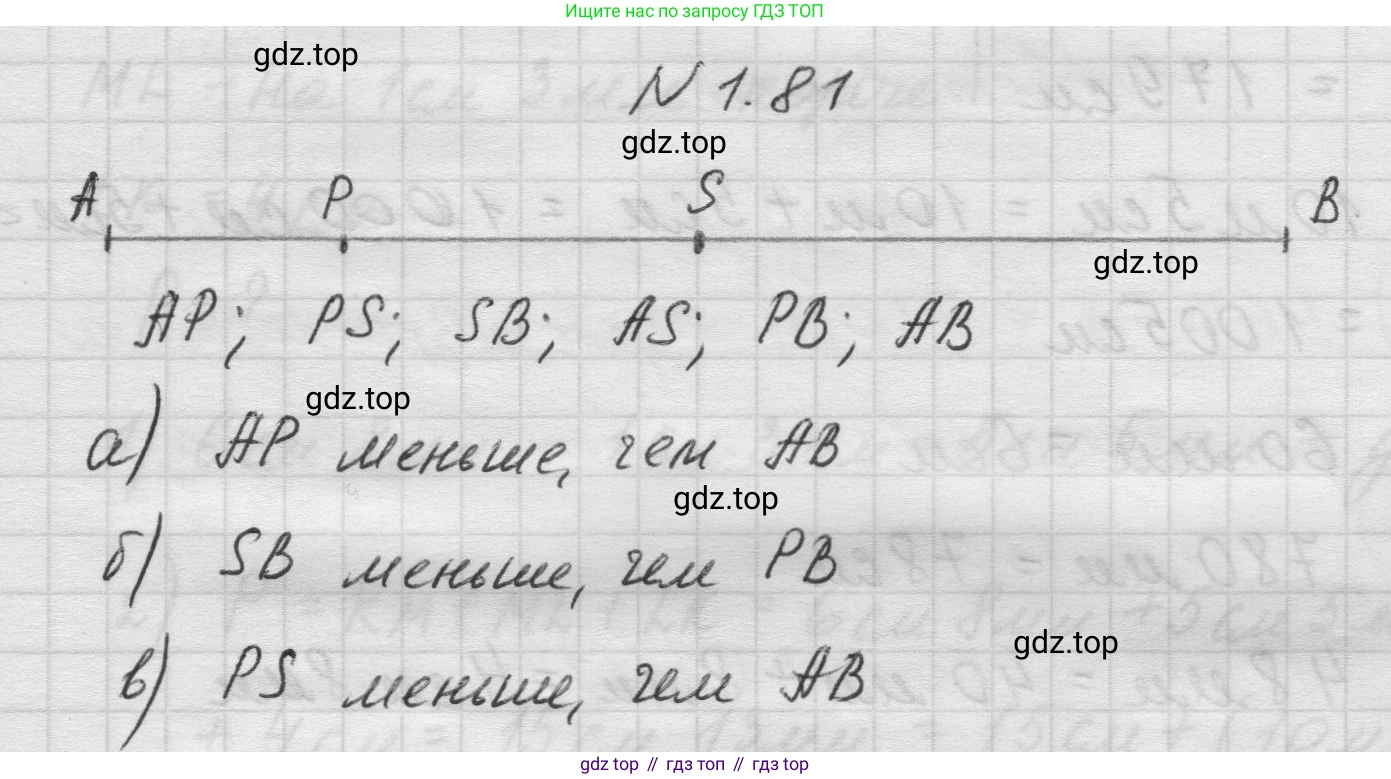 Ищите нас по запросу ГДЗ ТОП
gdz.top
N 1.81
gdz.top
A P S B
gdz.top
AP; PS; SB; AS; PB; AB
gdz.top
а) AP меньше, чем AB
gdz.top
б) SB меньше, чем PB
gdz.top
в) PS меньше, чем AB
gdz top // гдз топ // гдз top